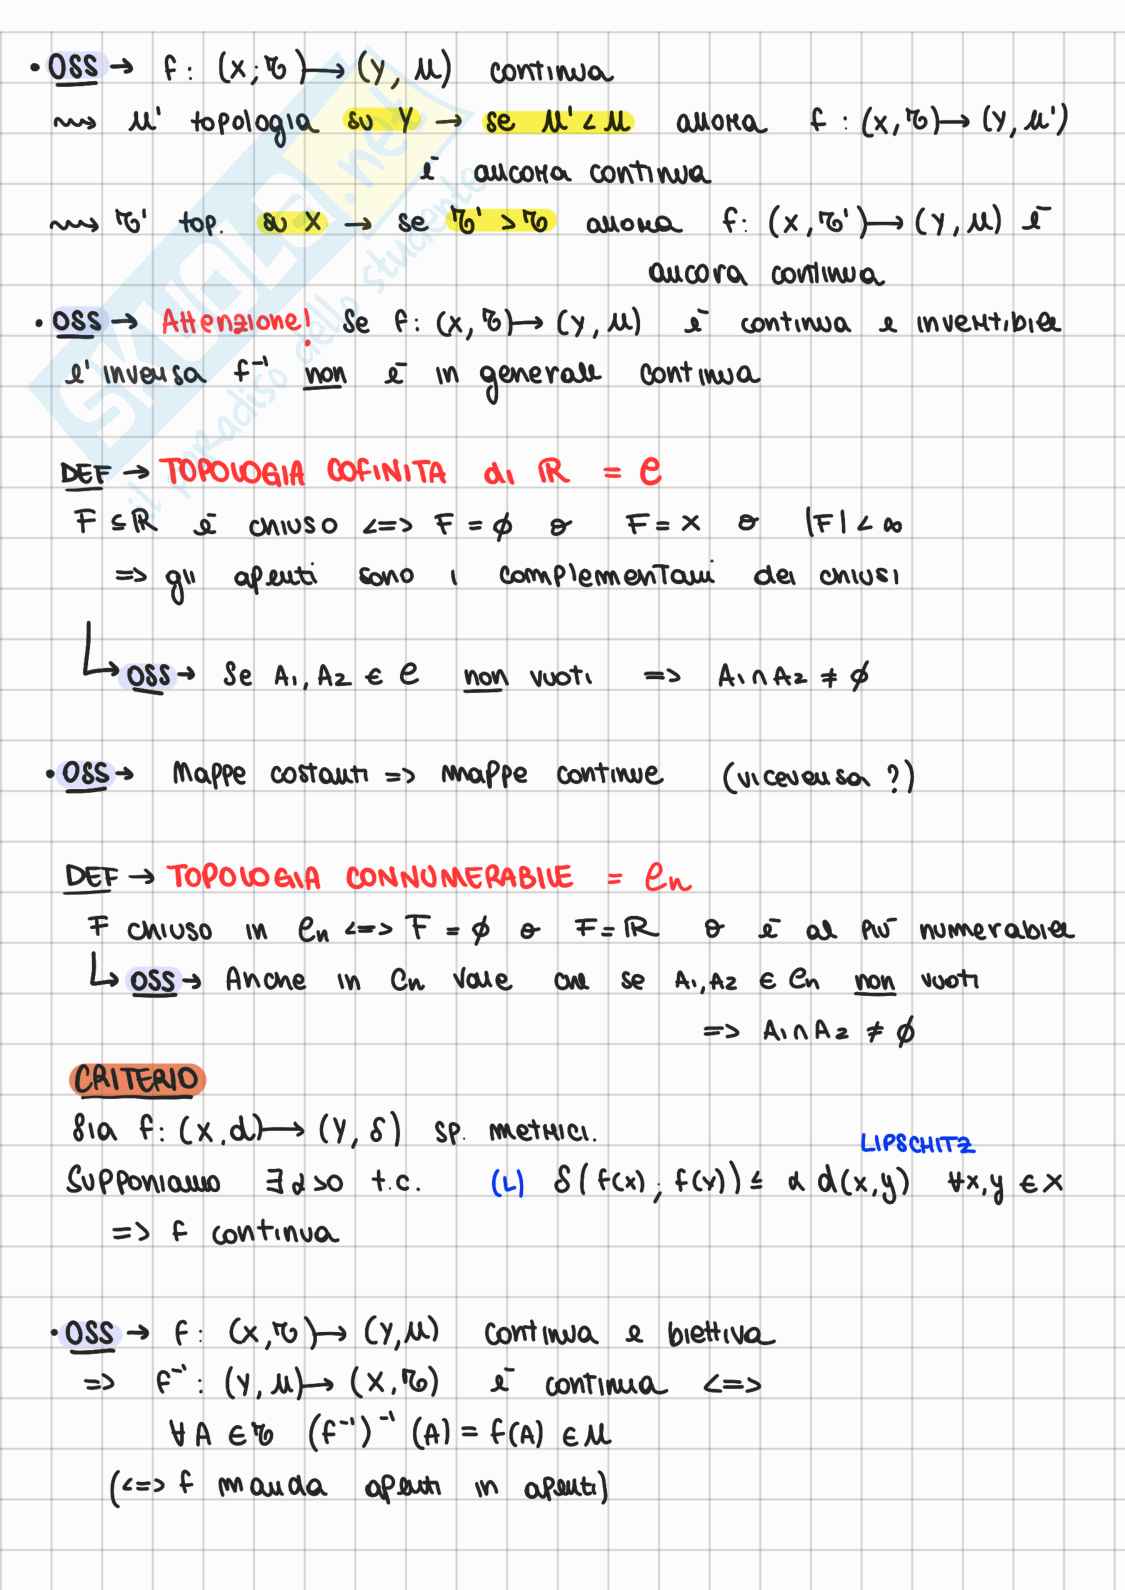 • OSS → f: (X; τ) ⟼ (Y, μ) continua
⇝ μ' topologia su Y → se μ' < μ allora f: (X, τ) ⟼ (Y, μ')
è ancora continua
⇝ τ' top. su X → se τ' > τ allora f: (X, τ') ⟼ (Y, μ) è
ancora continua
• OSS → Attenzione! Se f: (X, τ) ⟼ (Y, μ) è continua e invertibile
l'inversa f⁻¹ non è in generale continua
DEF → TOPOLOGIA COFINITA di ℝ = C
F ⊆ ℝ è chiuso <=> F = ∅ o F = X o |F| < ∞
=> gli aperti sono i complementari dei chiusi
↳ OSS → Se A₁, A₂ ∈ C non vuoti => A₁ ∩ A₂ ≠ ∅
• OSS → Mappe costanti => mappe continue (viceversa ?)
DEF → TOPOLOGIA CONNUMERABILE = Cn
F chiuso in Cn <=> F = ∅ o F = ℝ o è al più numerabile
↳ OSS → Anche in Cn vale che se A₁, A₂ ∈ Cn non vuoti
=> A₁ ∩ A₂ ≠ ∅
CRITERIO
Sia f: (X, d) ⟼ (Y, δ) sp. metrici.
LIPSCHITZ
Supponiamo ∃ α > 0 t.c. (L) δ(f(x); f(y)) ≤ α d(x, y) ∀x, y ∈ X
=> f continua
• OSS → f: (X, τ) ⟼ (Y, μ) continua e biettiva
=> f⁻¹: (Y, μ) ⟼ (X, τ) è continua <=>
∀ A ∈ τ (f⁻¹)⁻¹ (A) = f(A) ∈ μ
(<=> f manda aperti in aperti)
SKUOLA.net
il paradiso dello studente